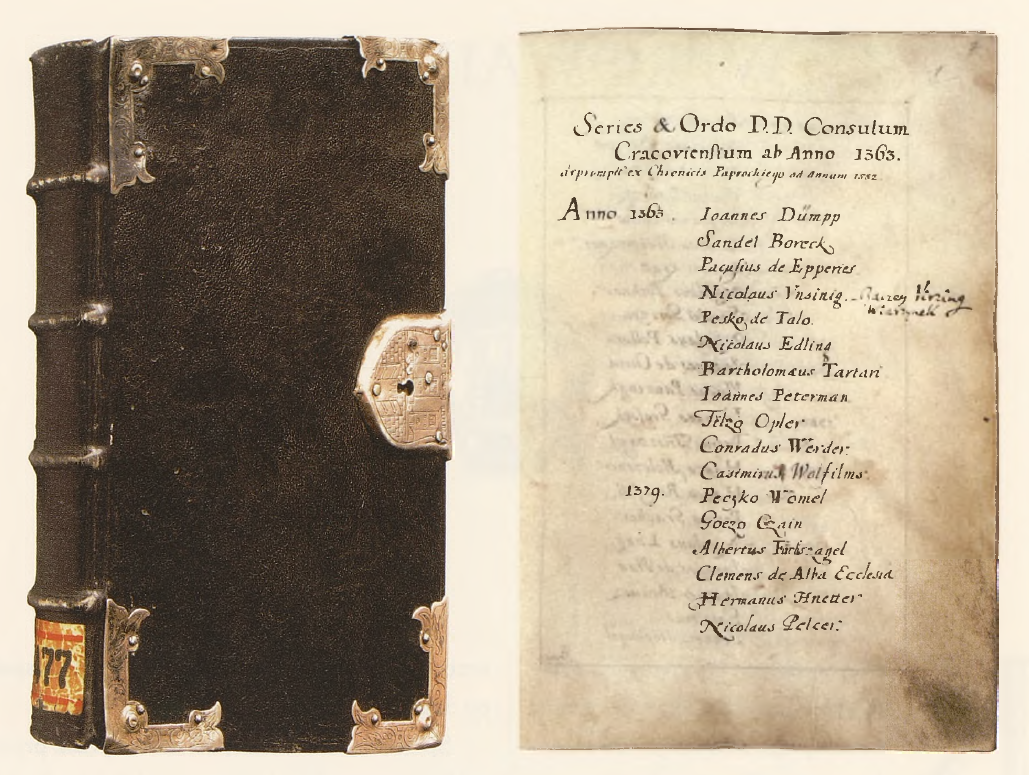 77
Series & Ordo D.D. Consulum
Cracoviensium ab Anno 1363.
ex Chronicis Paprockiego ad Annum 1582
Anno 1363. Ioannes Dümpp
Sandel Boreck
Pacusius de Epperies
Nicolaus Vnsinig
Wiarzynek
Pesko de Talo.
Nicolaus Edling
Bartholomæus Tartari
Ioannes Peterman
Opler
Conradus Werder
Casimirus Wolfilms
1379. Peczko Womel
Goezo
Albertus
Clemens de Alba Ecclesia
Hermanus Hnetter
Nicolaus Pelcer